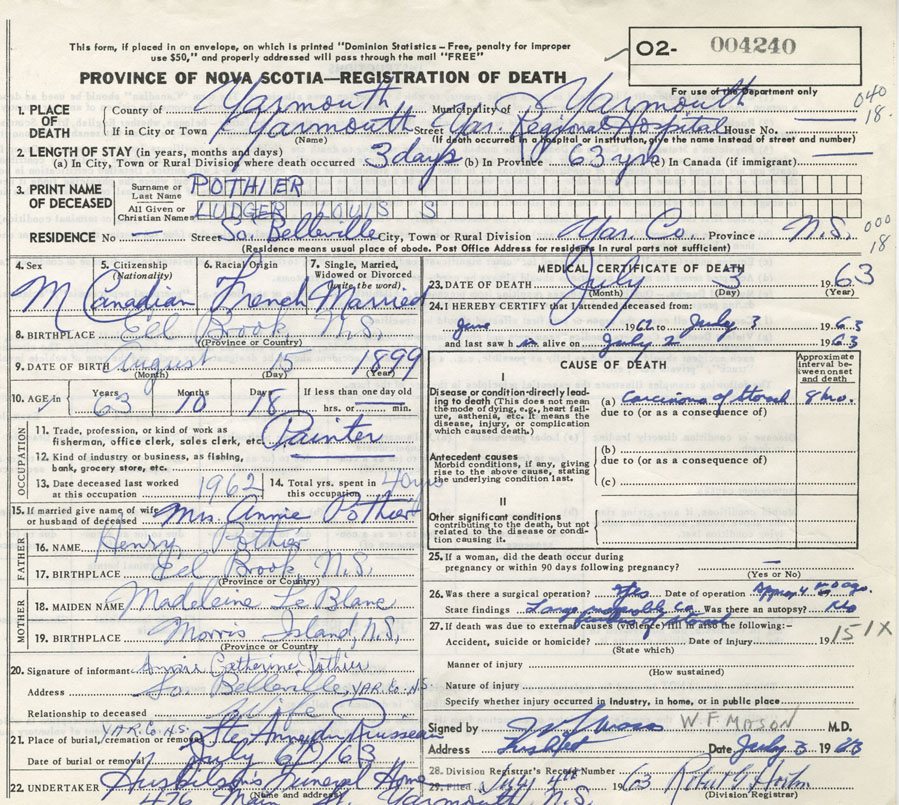 This form, if placed in an envelope, on which is printed "Dominion Statistics – Free, penalty for improper
use $50," and properly addressed will pass through the mail "FREE"
PROVINCE OF NOVA SCOTIA—REGISTRATION OF DEATH
02- 004240
For use of the Department only
040
18.
1. PLACE OF DEATH County of Yarmouth Municipality of Yarmouth
If in City or Town Yarmouth Street Yar. Regional Hospital House No. —
(Name) (If death occurred in a hospital or institution, give the name instead of street and number)
2. LENGTH OF STAY (in years, months and days)
(a) In City, Town or Rural Division where death occurred 3 days (b) In Province 63 yrs (c) In Canada (if immigrant) —
3. PRINT NAME OF DECEASED Surname or Last Name POTHIER
All Given or Christian Names LUDGER LOUIS S
RESIDENCE No — Street So. Belleville City, Town or Rural Division Yar. Co. Province N.S.
000
18
(Residence means usual place of abode. Post Office Address for residents in rural parts not sufficient)
4. Sex M
5. Citizenship (Nationality) Canadian
6. Racial Origin French
7. Single, Married, Widowed or Divorced (write the word). Married
8. BIRTHPLACE Eel Brook N.S.
(Province or Country)
9. DATE OF BIRTH August 15 1899
(Month) (Day) (Year)
10. AGE in Years 63 Months 10 Days 18 If less than one day old hrs. or min.
OCCUPATION
11. Trade, profession, or kind of work as fisherman, office clerk, sales clerk, etc. Painter
12. Kind of industry or business, as fishing, bank, grocery store, etc.
13. Date deceased last worked at this occupation 1962
14. Total yrs. spent in this occupation 40 yrs
15. If married give name of wife or husband of deceased Mrs. Annie Pothier
FATHER
16. NAME Henry Pothier
17. BIRTHPLACE Eel Brook, N.S.
(Province or Country)
MOTHER
18. MAIDEN NAME Madeleine Le Blanc
19. BIRTHPLACE Morris Island, N.S.
(Province or Country
20. Signature of informant Annie Catherine Pothier
Address So. Belleville, YAR. Co. N.S.
Relationship to deceased Wife
21. Place of burial, cremation or removal YAR. Co. N.S. Ste Anne du Ruisseau
Date of burial or removal July 6/63
22. UNDERTAKER Funeral Home
(Name and address)
476 Main St. Yarmouth N.S.
MEDICAL CERTIFICATE OF DEATH
23. DATE OF DEATH July 3 1963
(Month) (Day) (Year)
24. I HEREBY CERTIFY that I attended deceased from:
June 1962 to July 3 1963
and last saw h alive on July 2 1963
CAUSE OF DEATH
Approximate interval between onset and death
I
Disease or condition directly leading to death (This does not mean the mode of dying, e.g., heart failure, asthenia, etc. It means the disease, injury, or complication which caused death.)
(a) Carcinoma of Stomach 8 mo.
due to (or as a consequence of)
Antecedent causes
Morbid conditions, if any, giving rise to the above cause, stating the underlying condition last.
(b)
due to (or as a consequence of)
(c)
II
Other significant conditions
contributing to the death, but not related to the disease or condition causing it.
25. If a woman, did the death occur during
pregnancy or within 90 days following pregnancy? —
(Yes or No)
26. Was there a surgical operation? Yes Date of operation Approx 4 ago.
State findings Large inoperable Ca Was there an autopsy? No
of stomach
27. If death was due to external causes (violence) fill in also the following:-
151X
Accident, suicide or homicide? Date of injury 19
(State which)
Manner of injury
(How sustained)
Nature of injury
Specify whether injury occurred in industry, in home, or in public place
Signed by W. F. MASON M.D.
Address Date July 3 1963
28. Division Registrar's Record Number
29. Filed July 4th 1963
(Division Registrar)